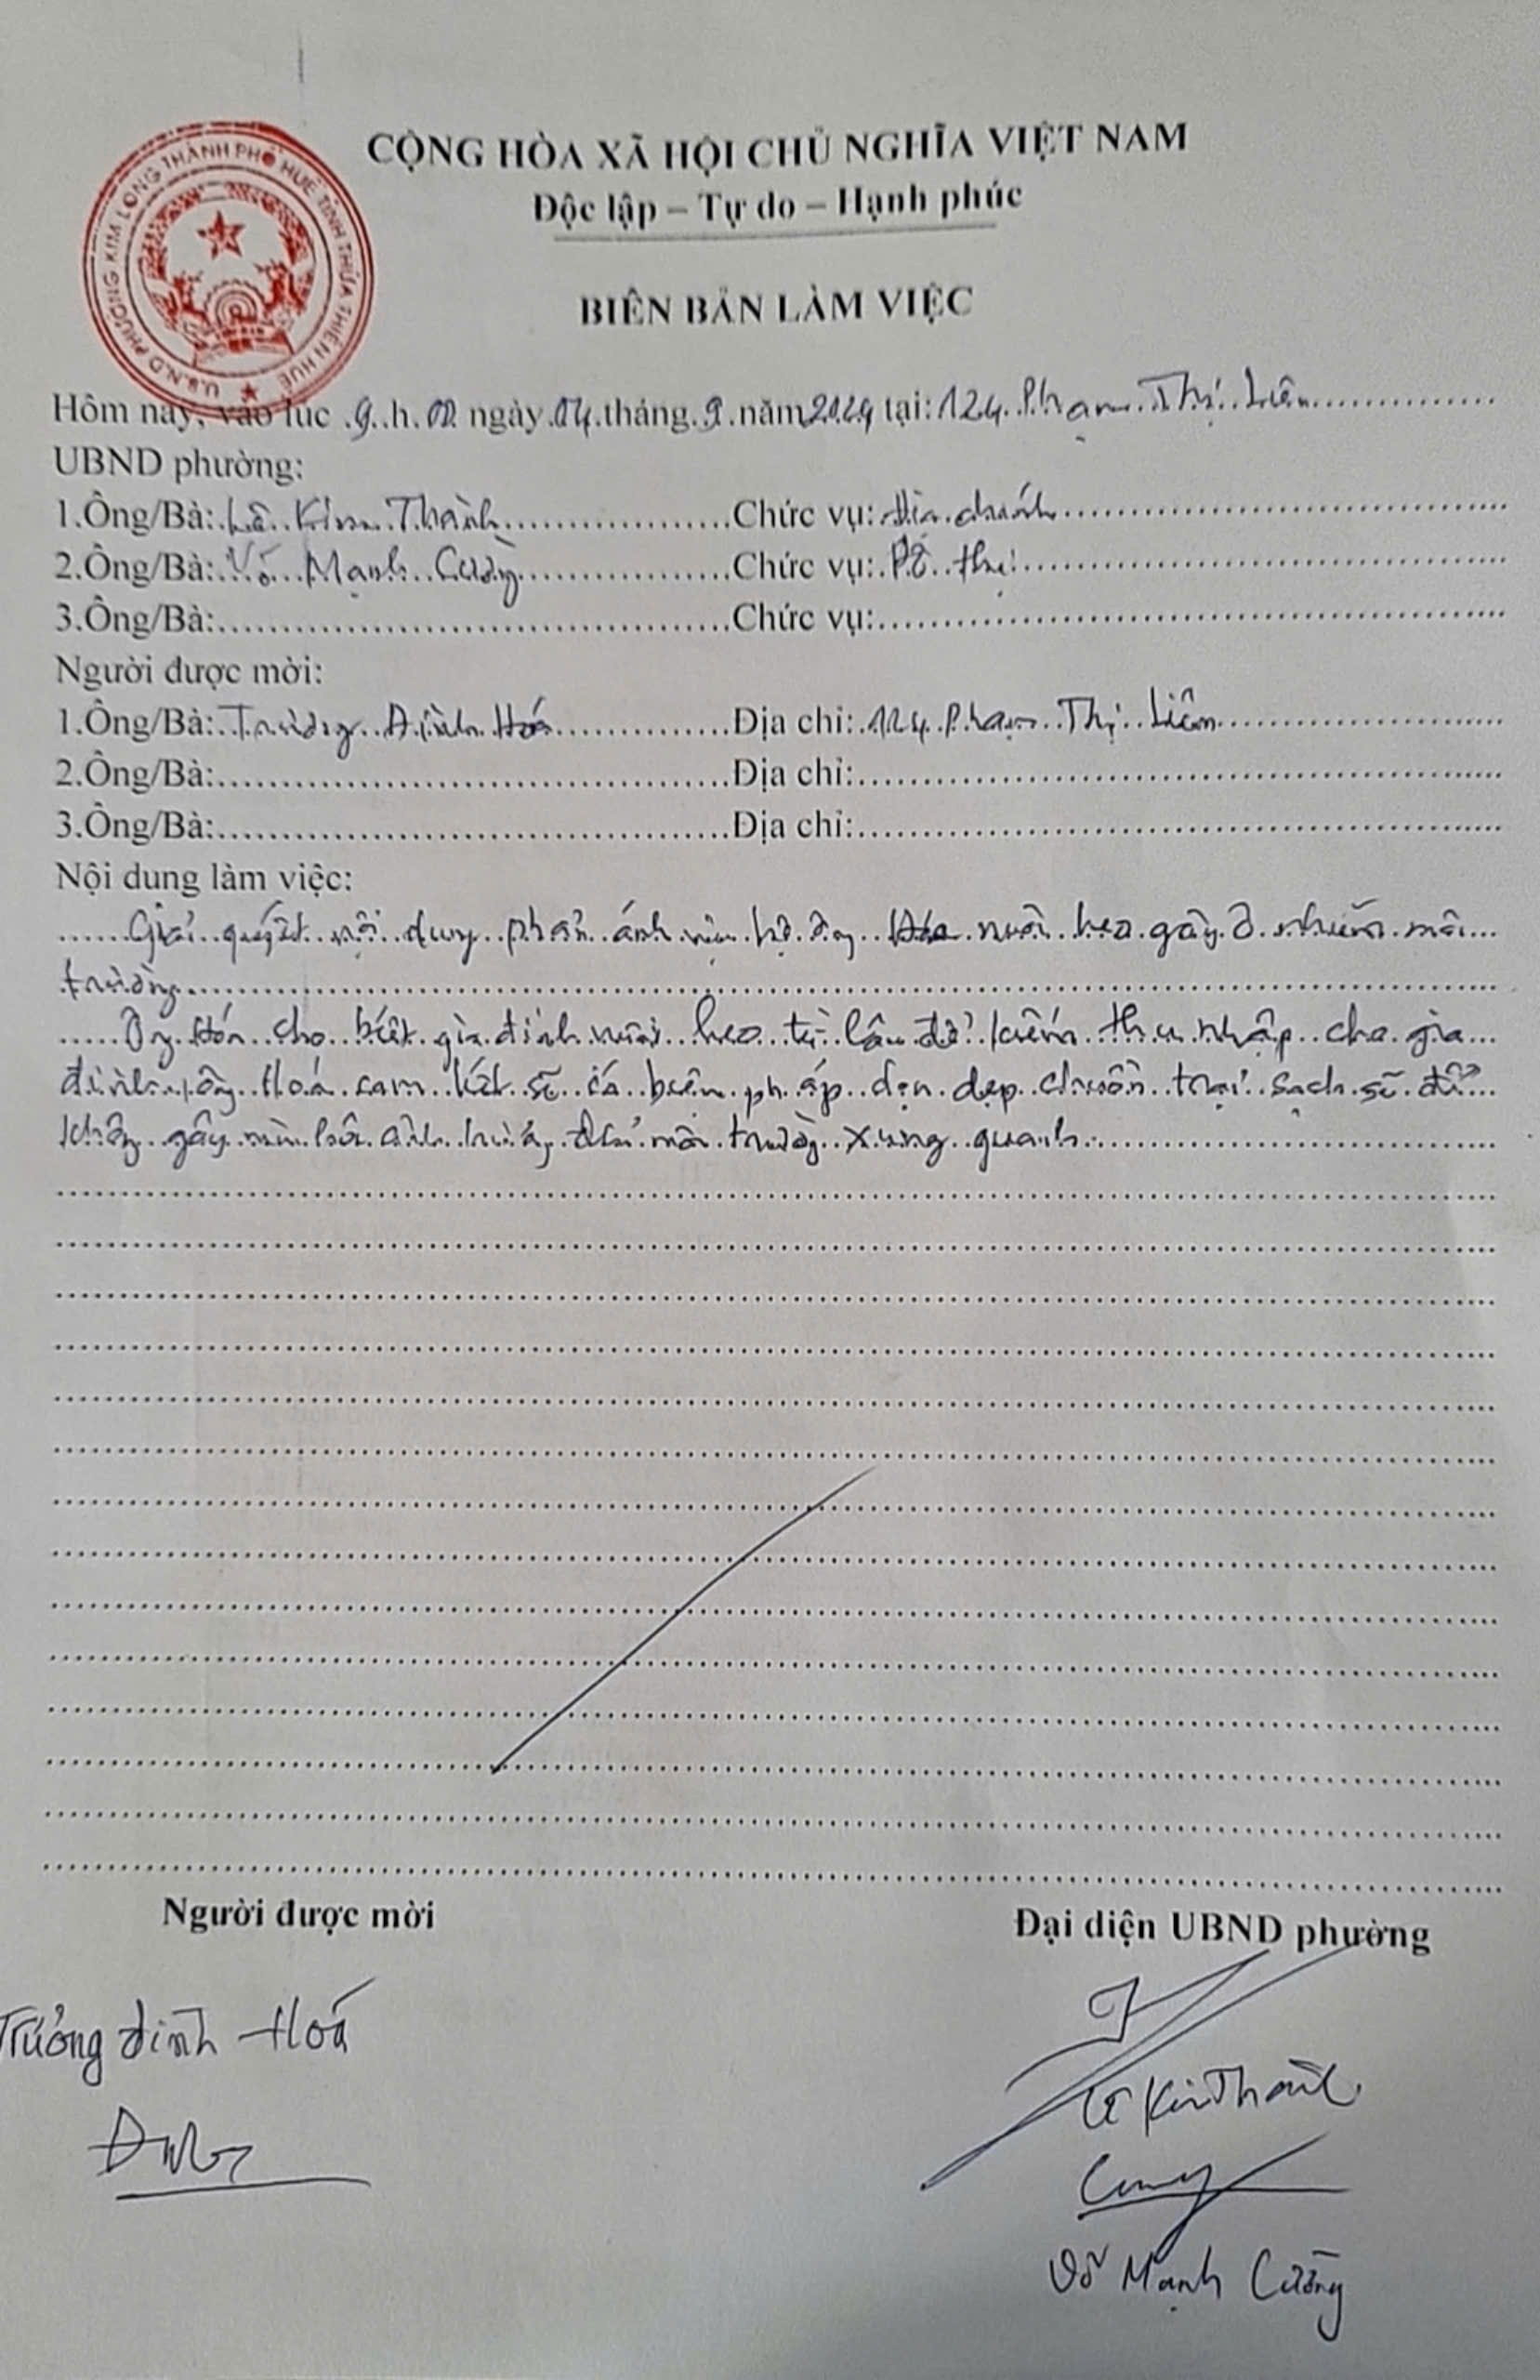 U.B.N.D PHƯỜNG KIM LONG THÀNH PHỐ HUẾ TỈNH THỪA THIÊN HUẾ
CỘNG HÒA XÃ HỘI CHỦ NGHĨA VIỆT NAM
Độc lập – Tự do – Hạnh phúc
BIÊN BẢN LÀM VIỆC
Hôm nay, vào lúc 9 h 00 ngày 04 tháng 9 năm 2024 tại: 124 Phạm Thị Liên
UBND phường:
1.Ông/Bà: Lê Kim Thành Chức vụ: Địa chính
2.Ông/Bà: Võ Mạnh Cường Chức vụ: thị
3.Ông/Bà: Chức vụ:
Người được mời:
1.Ông/Bà: Trương Đình Hoá Địa chỉ: 124 Phạm Thị Liên
2.Ông/Bà: Địa chỉ:
3.Ông/Bà: Địa chỉ:
Nội dung làm việc:
Giải quyết nội dung phản ánh hộ ông Hóa nuôi heo gây ô nhiễm môi
trường
Ông Hóa cho biết gia đình nuôi heo từ lâu để kiếm thu nhập cho gia
đình, ông Hoá cam kết sẽ có biện pháp dọn dẹp chuồng trại sạch sẽ để
không gây mùi hôi ảnh hưởng đến môi trường xung quanh.
Người được mời
Đại diện UBND phường
Trương đình Hoá
Lê Kim Thành
Võ Mạnh Cường